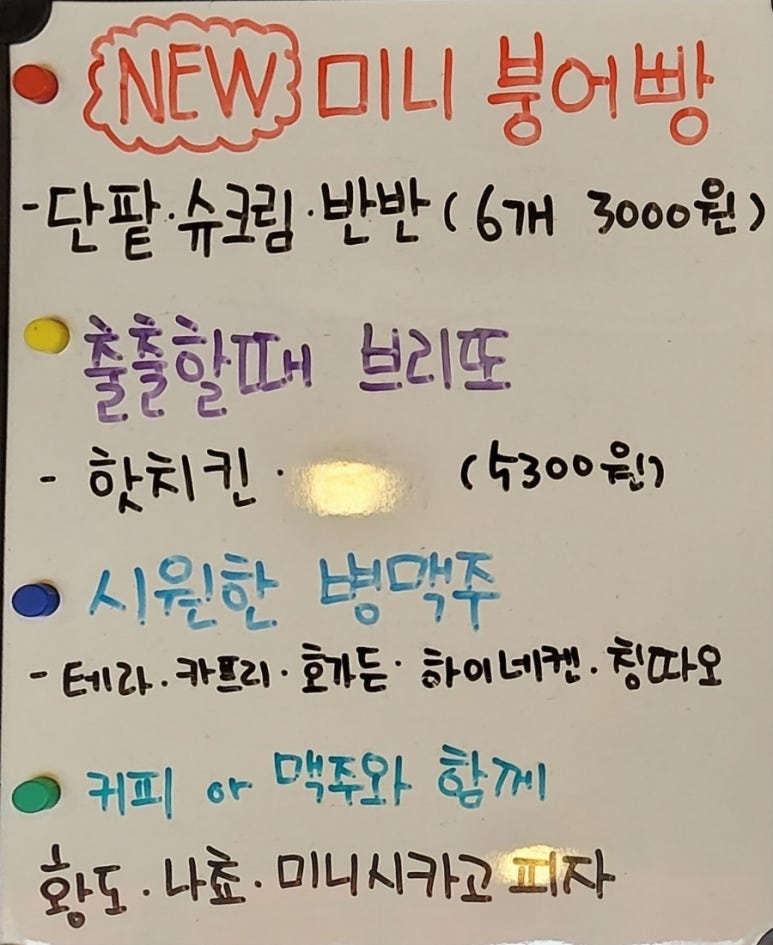 NEW 미니 붕어빵
-단팥·슈크림·반반(6개 3000원)
출출할때 브리또
- 핫치킨· (5300원)
시원한 병맥주
-테라·카프리·호가든·하이네켄·칭따오
커피 or 맥주와 함께
황도·나쵸·미니시카고 피자